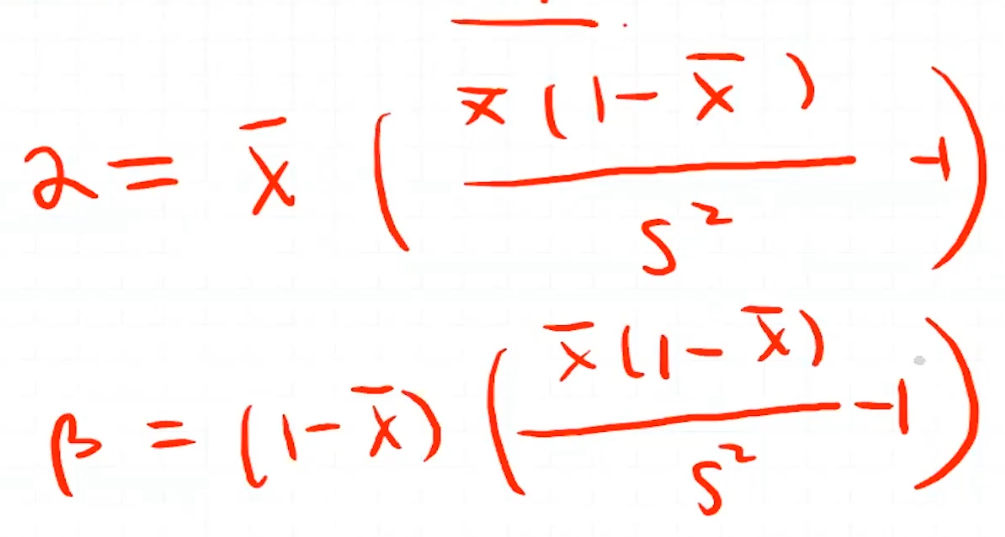 α = x̄ ( x̄ (1 - x̄ ) / s² - 1 )
β = (1 - x̄) ( x̄ (1 - x̄) / s² - 1 )